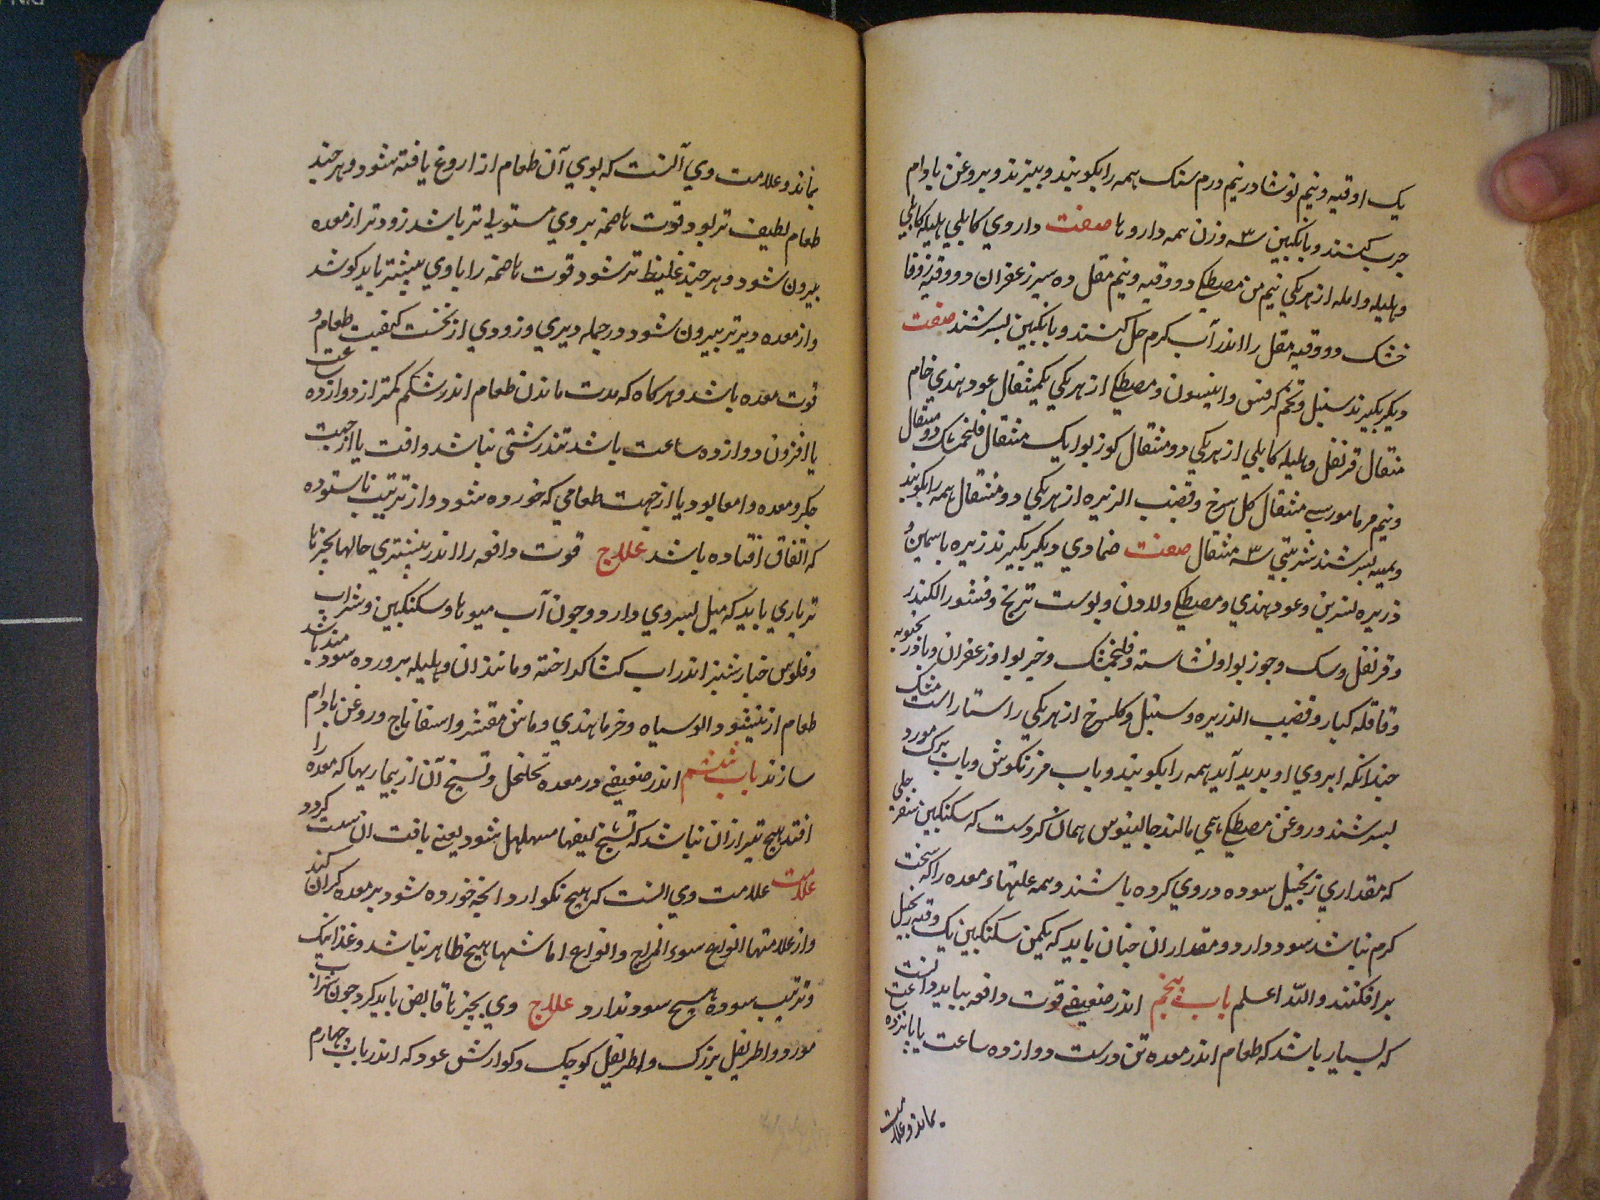 یک اوقیه و نیم نوشادر نیم درم سنک همه را بکوبند و ببیزند و بروغن بادام
چرب کنند و بانکبین سه وزن همه داروها صفت داروی کابلی هلیله کابلی
و بلیله و امله از هریکی نیم من مصطکی دو وقیه و نیم مقل ده سیر زعفران دو وقیه زوفا
خشک دو وقیه مقل را اندر آب کرم حل کنند و بانکبین بسرشند صفت
دیکر بکیرند سنبل و تخم کرفس و انیسون و مصطکی از هریکی یکمثقال عود هندی خام
مثقال قرنفل و هلیله کابلی از هریکی دو مثقال کوزبوا یک مثقال فلنجمشک دو مثقال
و نیم مرماحور سه مثقال کل سرخ و قصب الذریره از هریکی دو مثقال همه را بکوبند
و بمیبه بسرشند شربتی سه مثقال صفت ضمادی دیکر بکیرند زیره یاسمین و
ذریره نسرین و عود هندی و مصطکی و لادن و پوست ترنج و قشور الکندر
و قرنفل و سک و جوزبوا و نشاسته و فلنجمشک و خیربوا و زعفران و بادرنجبویه
و قاقله کبار و قصب الذریره و سنبل و کلسرخ از هریکی راستاراست مشک
چندانکه ابروی او بدید آید همه را بکوبند و باب مرزنکوش و باب برک مورد
بسرشند و روغن مصطکی همی مالند جالینوس همان کردست که سکنکبین سفرجلی
که مقداری زنجبیل سوده در وی کرده باشند و همه علتهاء معده را که سخت
کرم نباشد سود دارد و مقدار ان چنان باید که یکمن سکنکبین یک وقیه زنجبیل
برافکنند والله اعلم باب پنجم اندر ضعیفی قوت دافعه بباید دانست
که بسیار باشد که طعام اندر معده تن درست دوازده ساعت یا پانزده ساعت
بماند و علامت
بماند و علامت وی آنست که بوی آن طعام از اروغ یافته شود و هرچند
طعام لطیف تر بود و قوت هاضمه بر وی مستولی تر باشد زودتر از معده
بیرون شود و هرچند غلیظ تر شود قوت هاضمه را با وی بیشتر باید کوشد
و از معده دیرتر بیرون شود در جمله دیری و زودی از نخست کیفیت طعام و
قوت معده باشد و هرکاه که مدت ماندن طعام اندر شکم کمتر از دوازده ساعت
یا افزون دوازده ساعت باشد تندرستی نباشد و افت یا از جهت
جکر و معده و امعا بود یا از جهت طعامی که خورده شود و از ترتیب ناستوده
که اتفاق افتاده باشد علاج قوت دافعه را اندر بیشتری حالها بچیزها
تر یاری باید که میل بسردی دارد و چون آب میوها و سکنکبین و شراب
و فلوس خیارشنبر اندر اب کشنا کداخته و مانند ان و هلیله پرورده سودمند باشد
طعام از نیشو و الو سیاه و خرما هندی و ماش مقشر و اسفاناج و روغن بادام
سازند باب ششم اندر ضعیفی در معده تخلخل و تسیخ آن از بیماریها که معده را
افتد هیچ بتر از ان نباشد که تسیخ لیفها مهلهل شود یعنی بافت ان سست کردد
علامت علامت وی انست که هیچ نکوارد انچه خورده شود بر معده کرانی کند
و از علامتها انواع سوء المزاج و انواع اماسها هیچ ظاهر نباشد و غذا نیک
و ترتیب ستوده هیچ سود ندارد علاج وی بچیزها قابض باید کرد چون شراب
مورد و اطریفل بزرک و اطریفل کوچک و کوارش عود که اندر باب چهارم